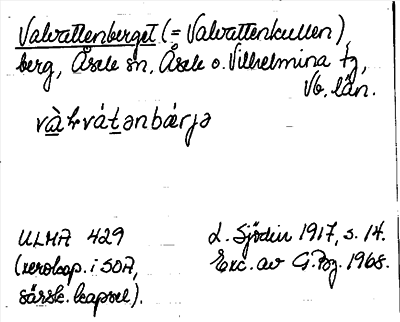 Valvattenberget (= Valvattenkullen),
berg, Åsele sn, Åsele o. Vilhelmina tg,
Vb. län.
ULMA 429
(xerokop. i SOA,
särsk. kapsel).
L. Sjödin 1917, s. 14.
Exc. av G. Pzg. 1968.